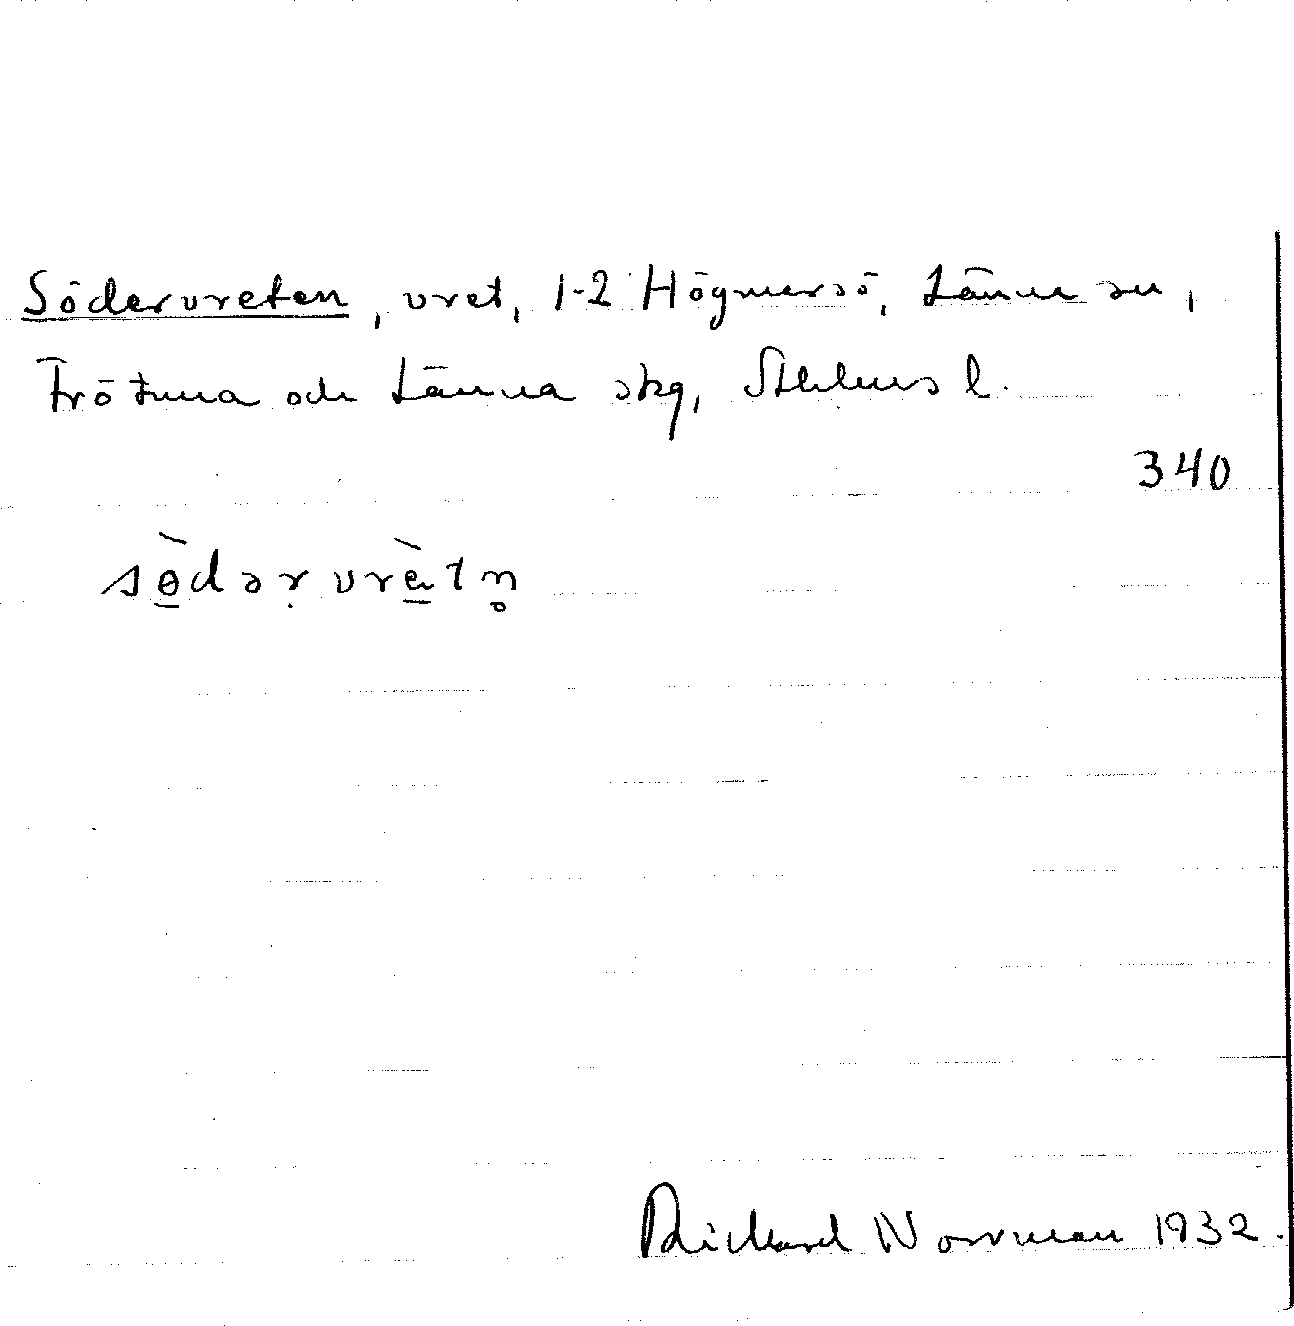 Södervreten, vret, 1-2 Högmarsö, Länna sn,
Frötuna och Länna skg, Sthlms l.
340
sö̀dərvrètn̥
Rickard Norman 1932.